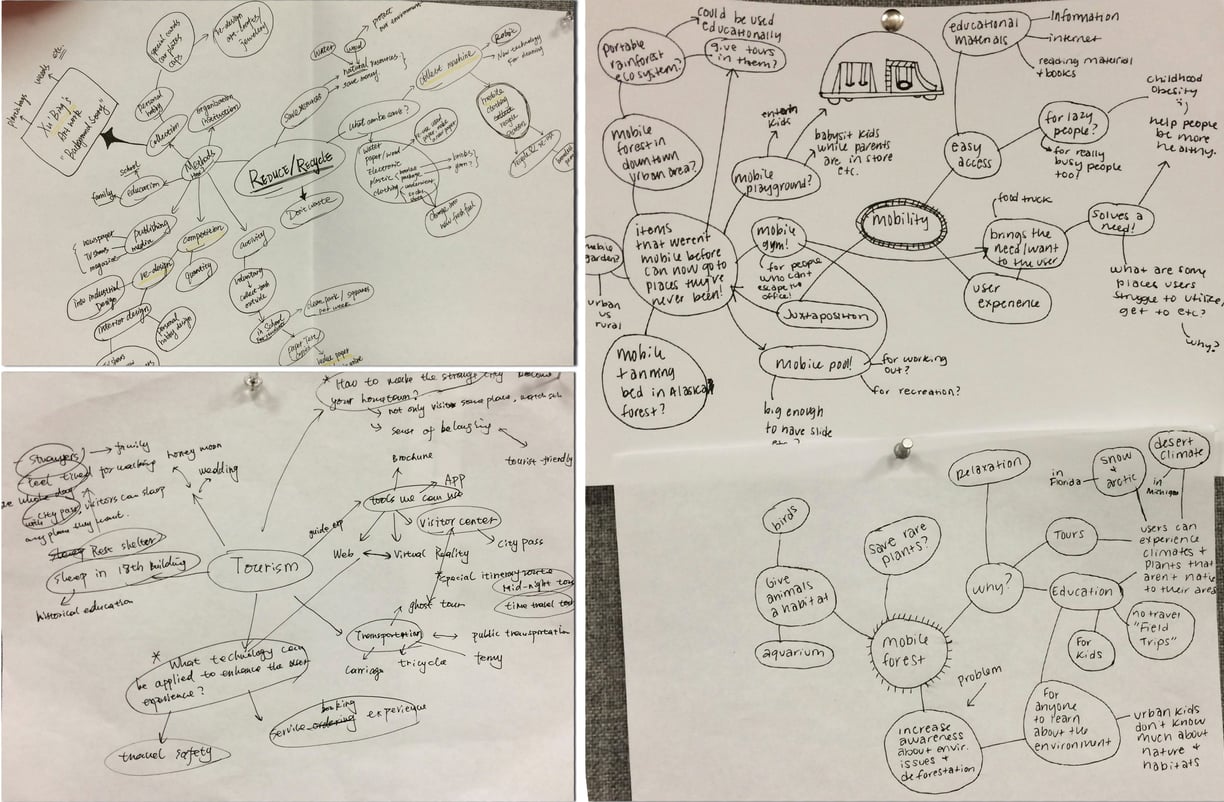 plastic bags
weeds etc.
Xu Bing's
Art work
"Background Story"
special cards
car plates
caps
re-design
jewellery
personal
hobby
collection
organization
institution
Methods
school
family
education
newspaper
TV shows
magazine
publishing
media
competition
re-design
quantity
into industrial
Design
interior design
personal
hobby design
activity
voluntary
collect trash
outside
in School
clean park / squares
REDUCE/RECYCLE
Don't waste
save resources
water
wood
natural resources
save money
protect
our environment
what can be save?
water
paper/wood
Electronic
plastic
clothing
collect machine
Robic
New technology
For cleaning
mobile
climbing
collecte
recycle
change into
new fresh fuel
could be used
educationally
portable
rainforest
ecosystem?
give tours
in them?
mobile
forest in
downtown
urban area?
entertain
kids
mobile
playground?
babysit kids
while parents
are in store
etc.
items
that weren't
mobile before
can now go to
places they've
never been!
mobile
garden?
urban
vs
rural
mobile
tanning
bed in Alaska
forest?
mobile
gym!
for people
who can't
escape the
office!
Juxtaposition
Mobile pool!
for working
out?
for recreation?
big enough
to have slide
mobility
educational
materials
Information
internet
reading material
+ books
easy
access
for lazy
people?
for really
busy people
too!
childhood
obesity
help people
be more
healthy.
food truck
brings the
need/want
to the user
solves a
need!
user
experience
what are some
places users
struggle to utilize,
get to etc?
why?
* How to make the strange city become
your hometown?
not only visit some place, watch
sense of belonging
tourist-friendly
Strangers
family
feel tired for walking
whole day
honey moon
wedding
city pass, visitors can sleep
any place they want.
Rest shelter
sleep in 18th building
historical education
Tourism
guide
Brochure
App
tools we can use
Visitor center
city pass
Web
Virtual Reality
special itinerary route
mid-night tour
time travel tool
ghost tour
Transportation
public transportation
Carriage
tricycle
ferry
* What technology can
be applied to enhance the user
experience?
booking
service ordering experience
travel safety
birds
Give
animals
a habitat
aquarium
save rare
plants?
mobile
forest
relaxation
why?
Tours
Education
in
Florida
snow
+
arctic
desert
climate
in
Michigan
users can
experience
climates +
plants that
aren't native
to their area
For
Kids
no travel
"Field
Trips"
Problem
increase
awareness
about envir.
issues +
deforestation
For
anyone
to learn
about the
environment
urban kids
don't know
much about
nature +
habitats